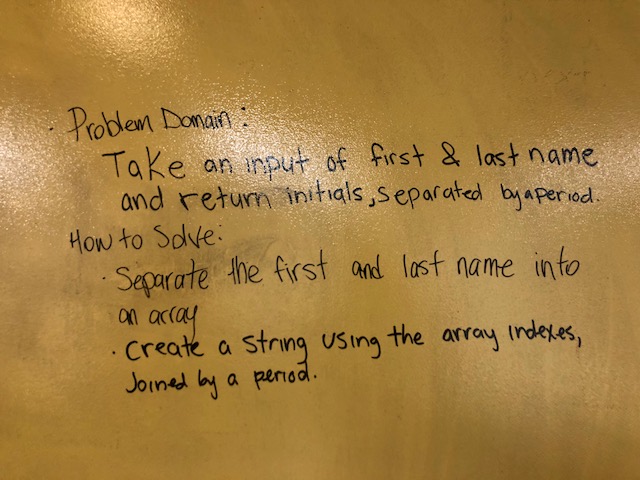 · Problem Domain:
Take an input of first & last name
and return initials, separated by a period.
How to Solve:
· Separate the first and last name into
an array
· Create a string using the array indexes,
Joined by a period.